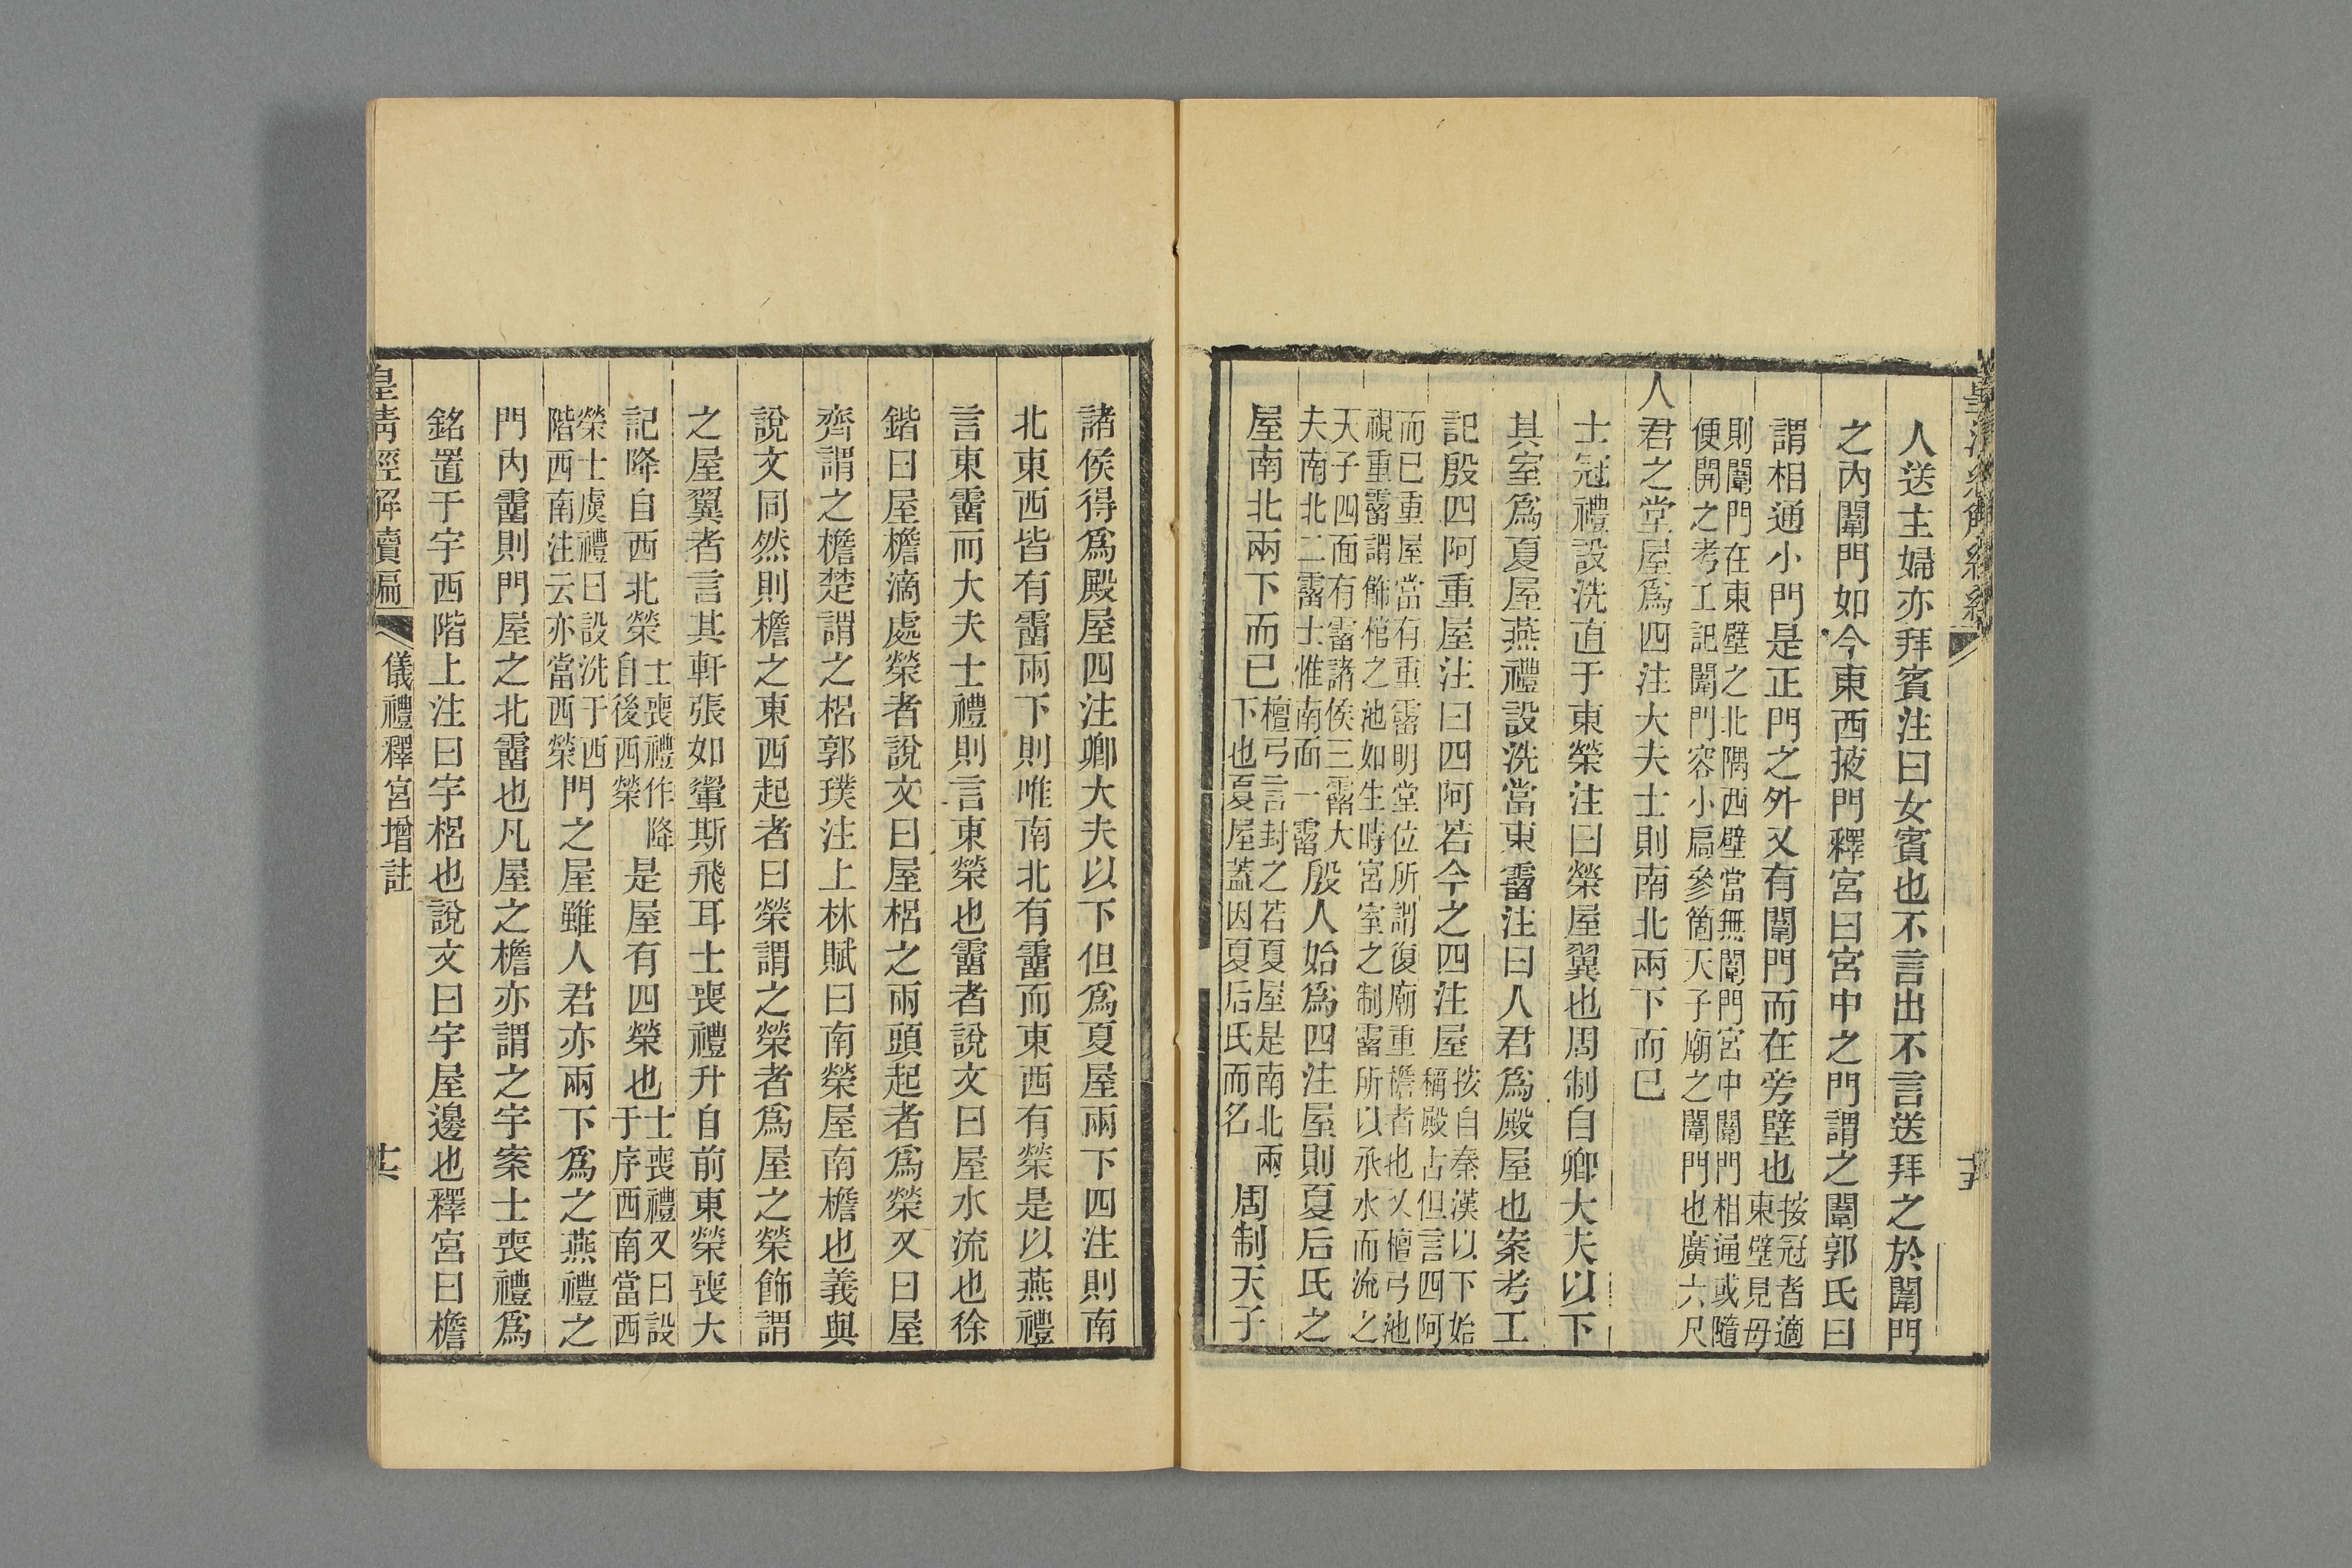 人送主婦亦拜賓注曰女賓也不言出不言送拜之於闈門
之內闈門如今東西掖門釋宮曰宮中之門謂之闈郭氏曰
謂相通小門是正門之外又有闈門而在旁壁也按冠者適東壁見母
則闈門在東壁之北隅西壁當無闈門宮中闈門相通或隨
便開之考工記闈門容小扃參箇天子廟之闈門也廣六尺
人君之堂屋爲四注大夫士則南北兩下而已
士冠禮設洗直于東榮注曰榮屋翼也周制自卿大夫以下
其室爲夏屋燕禮設洗當東霤注曰人君爲殿屋也案考工
記殷四阿重屋注曰四阿若今之四注屋按自秦漢以下始稱殿古但言四阿
而已重屋當有重霤明堂位所謂復廟重檐者也又檀弓池
視重霤謂飾棺之池如生時宮室之制霤所以承水而流之
天子四面有霤諸侯三霤大夫南北二霤士惟南面一霤殷人始爲四注屋則夏后氏之
屋南北兩下而已檀弓言封之若夏屋是南北兩下也夏屋蓋因夏后氏而名周制天子
諸侯得爲殿屋四注卿大夫以下但爲夏屋兩下四注則南
北東西皆有霤兩下則唯南北有霤而東西有榮是以燕禮
言東霤而大夫士禮則言東榮也霤者說文曰屋水流也徐
鍇曰屋檐滴處榮者說文曰屋梠之兩頭起者爲榮又曰屋
齊謂之檐楚謂之梠郭璞注上林賦曰南榮屋南檐也義與
說文同然則檐之東西起者曰榮謂之榮者爲屋之榮飾謂
之屋翼者言其軒張如翬斯飛耳士喪禮升自前東榮喪大
記降自西北榮士喪禮作降自後西榮是屋有四榮也士喪禮又曰設于序西南當西
榮士虞禮曰設洗于西階西南注云亦當西榮門之屋雖人君亦兩下爲之燕禮之
門內霤則門屋之北霤也凡屋之檐亦謂之宇案士喪禮爲
銘置于宇西階上注曰宇梠也說文曰宇屋邊也釋宮曰檐
皇清經解續編 儀禮釋宮增註